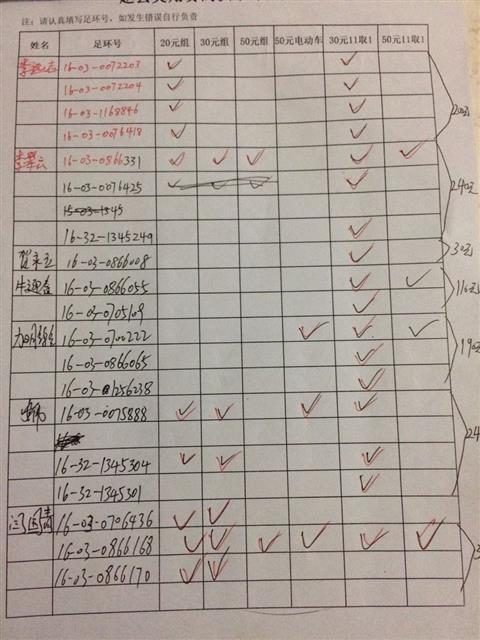 注：请认真填写足环号，如发生错误自行负责
姓名 足环号 20元组 30元组 50元组 50元电动车 30元11取1 50元11取1
16-03-0072203 ✓ ✓
16-03-0072204 ✓ ✓
16-03-1168846 ✓ ✓
16-03-0076418 ✓ ✓ 200元
16-03-0866331 ✓ ✓ ✓ ✓ ✓
16-03-0076425 ✓ ✓ ✓ ✓ 240元
16-32-1345249 ✓
16-03-0866008 ✓ 30元
16-03-0866055 ✓ ✓ 110元
16-03-0705109 ✓
16-03-0700222 ✓ ✓ ✓ 190元
16-03-0866065 ✓
16-03-1256238 ✓
16-03-0075888 ✓ ✓ ✓ ✓ 24
16-32-1345304 ✓ ✓ ✓
16-32-1345301 ✓
16-03-0706436 ✓ ✓
16-03-0866168 ✓ ✓ ✓ ✓ ✓ ✓ 3
16-03-0866170 ✓ ✓